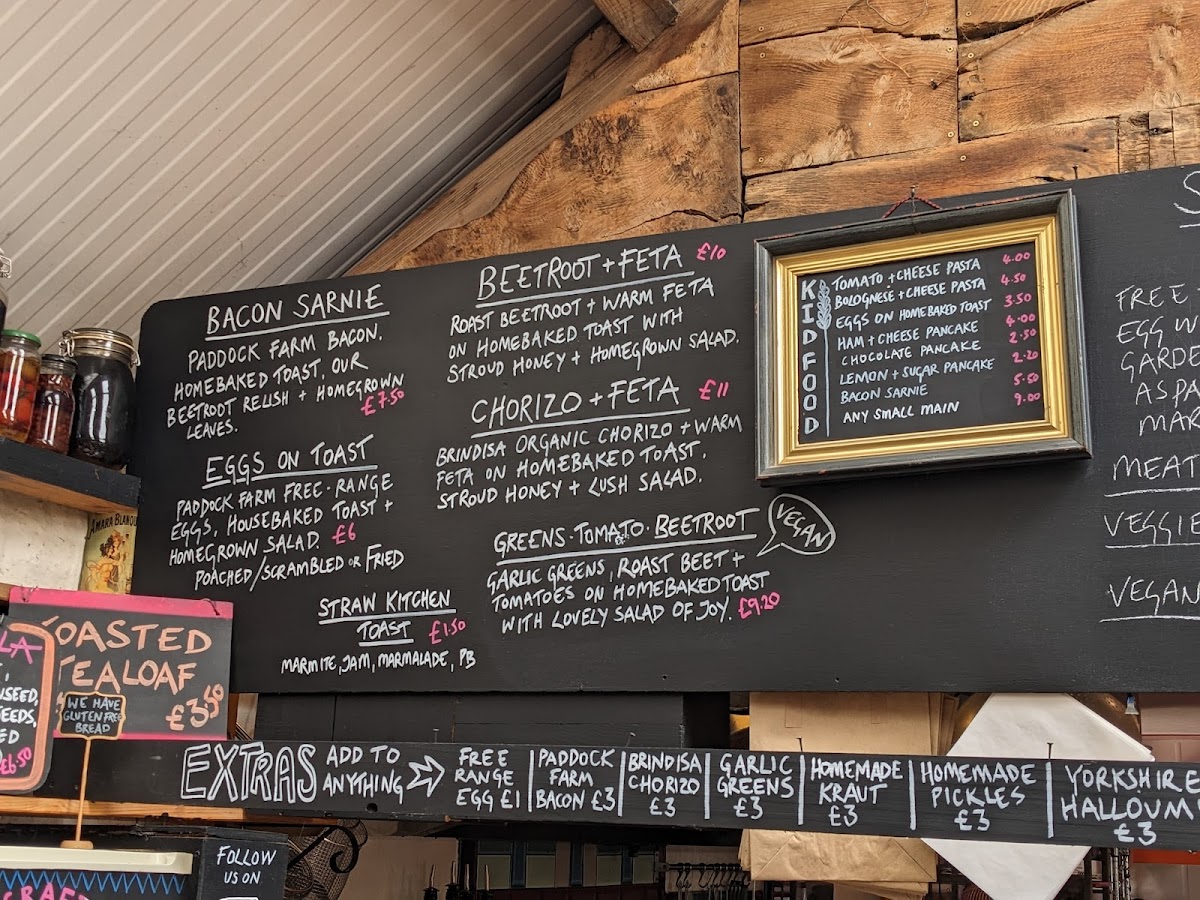 BACON SARNIE
PADDOCK FARM BACON.
HOMEBAKED TOAST, OUR
BEETROOT RELISH + HOMEGROWN
LEAVES.
£7.50
EGGS ON TOAST
PADDOCK FARM FREE-RANGE
EGGS, HOUSEBAKED TOAST +
HOMEGROWN SALAD. £6
POACHED/SCRAMBLED OR FRIED
STRAW KITCHEN
TOAST £1.50
MARMITE, JAM, MARMALADE, PB
BEETROOT + FETA £10
ROAST BEETROOT + WARM FETA
ON HOMEBAKED TOAST WITH
STROUD HONEY + HOMEGROWN SALAD.
CHORIZO + FETA £11
BRINDISA ORGANIC CHORIZO + WARM
FETA ON HOMEBAKED TOAST.
STROUD HONEY + LUSH SALAD.
GREENS·TOMATO·BEETROOT VEGAN
GARLIC GREENS, ROAST BEET +
TOMATOES ON HOMEBAKED TOAST
WITH LOVELY SALAD OF JOY. £9.20
KID FOOD
TOMATO + CHEESE PASTA 4.00
BOLOGNESE + CHEESE PASTA 4.50
EGGS ON HOMEBAKED TOAST 3.50
HAM + CHEESE PANCAKE 4.00
CHOCOLATE PANCAKE 2.50
LEMON + SUGAR PANCAKE 2.20
BACON SARNIE 5.50
ANY SMALL MAIN 9.00
FREE
EGG
GARDE
ASPA
MAR
MEAT
VEGGIE
VEGAN
OASTED
TEALOAF
£3.50
WE HAVE
GLUTEN FREE
BREAD
LA
NSEED,
EEDS,
ED
£6.50
EXTRAS ADD TO ANYTHING
FREE RANGE EGG £1
PADDOCK FARM BACON £3
BRINDISA CHORIZO £3
GARLIC GREENS £3
HOMEMADE KRAUT £3
HOMEMADE PICKLES £3
YORKSHIRE HALLOUM £3
FOLLOW
US ON
CRAFT